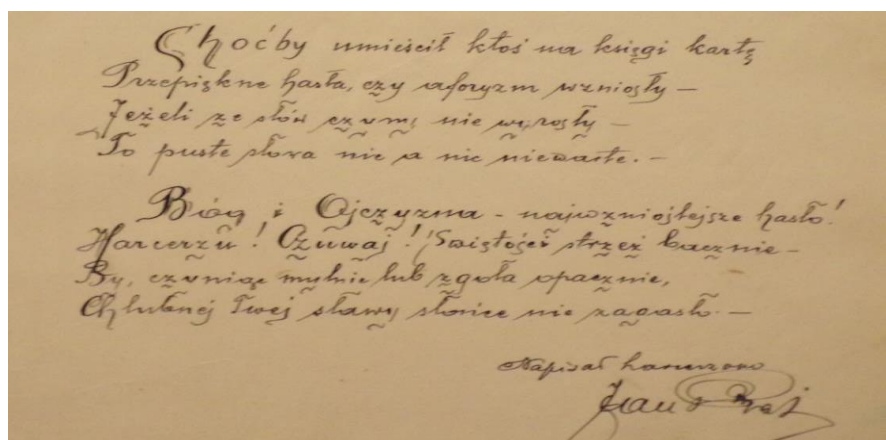 Choćby umieścił ktoś na księgi kartę
Przepiękne hasła, czy aforyzm wzniosły —
Jeżeli ze słów czyny nie wyrosły —
To puste słowa nic a nic niewarte. —
Bóg i Ojczyzna - najwznioślejsze hasło!
Harcerzu! Czuwaj! Świętości strzeż bacznie —
By, czyniąc mylnie lub zgoła opacznie,
Chlubnej Twej sławy słońce nie zagasło. —
Napisał
Jan